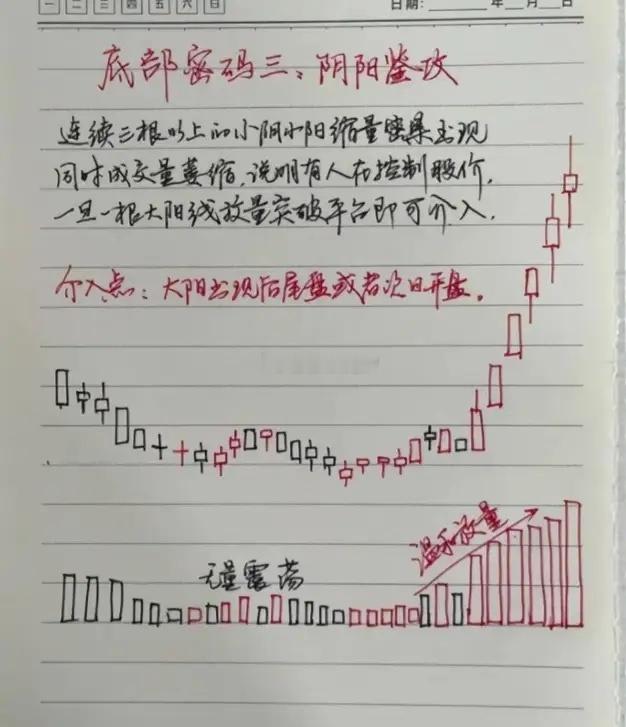 一 二 三 四 五 六 日
日期：____年__月__日
底部密码三：阴阳鉴攻
连续三根以上的小阴小阳缩量密集出现
同时成交量萎缩，说明有人在控制股价，
一旦一根大阳线放量突破平台即可介入．
介入点：大阳出现后尾盘或者次日开盘。
温和放量
无量震荡